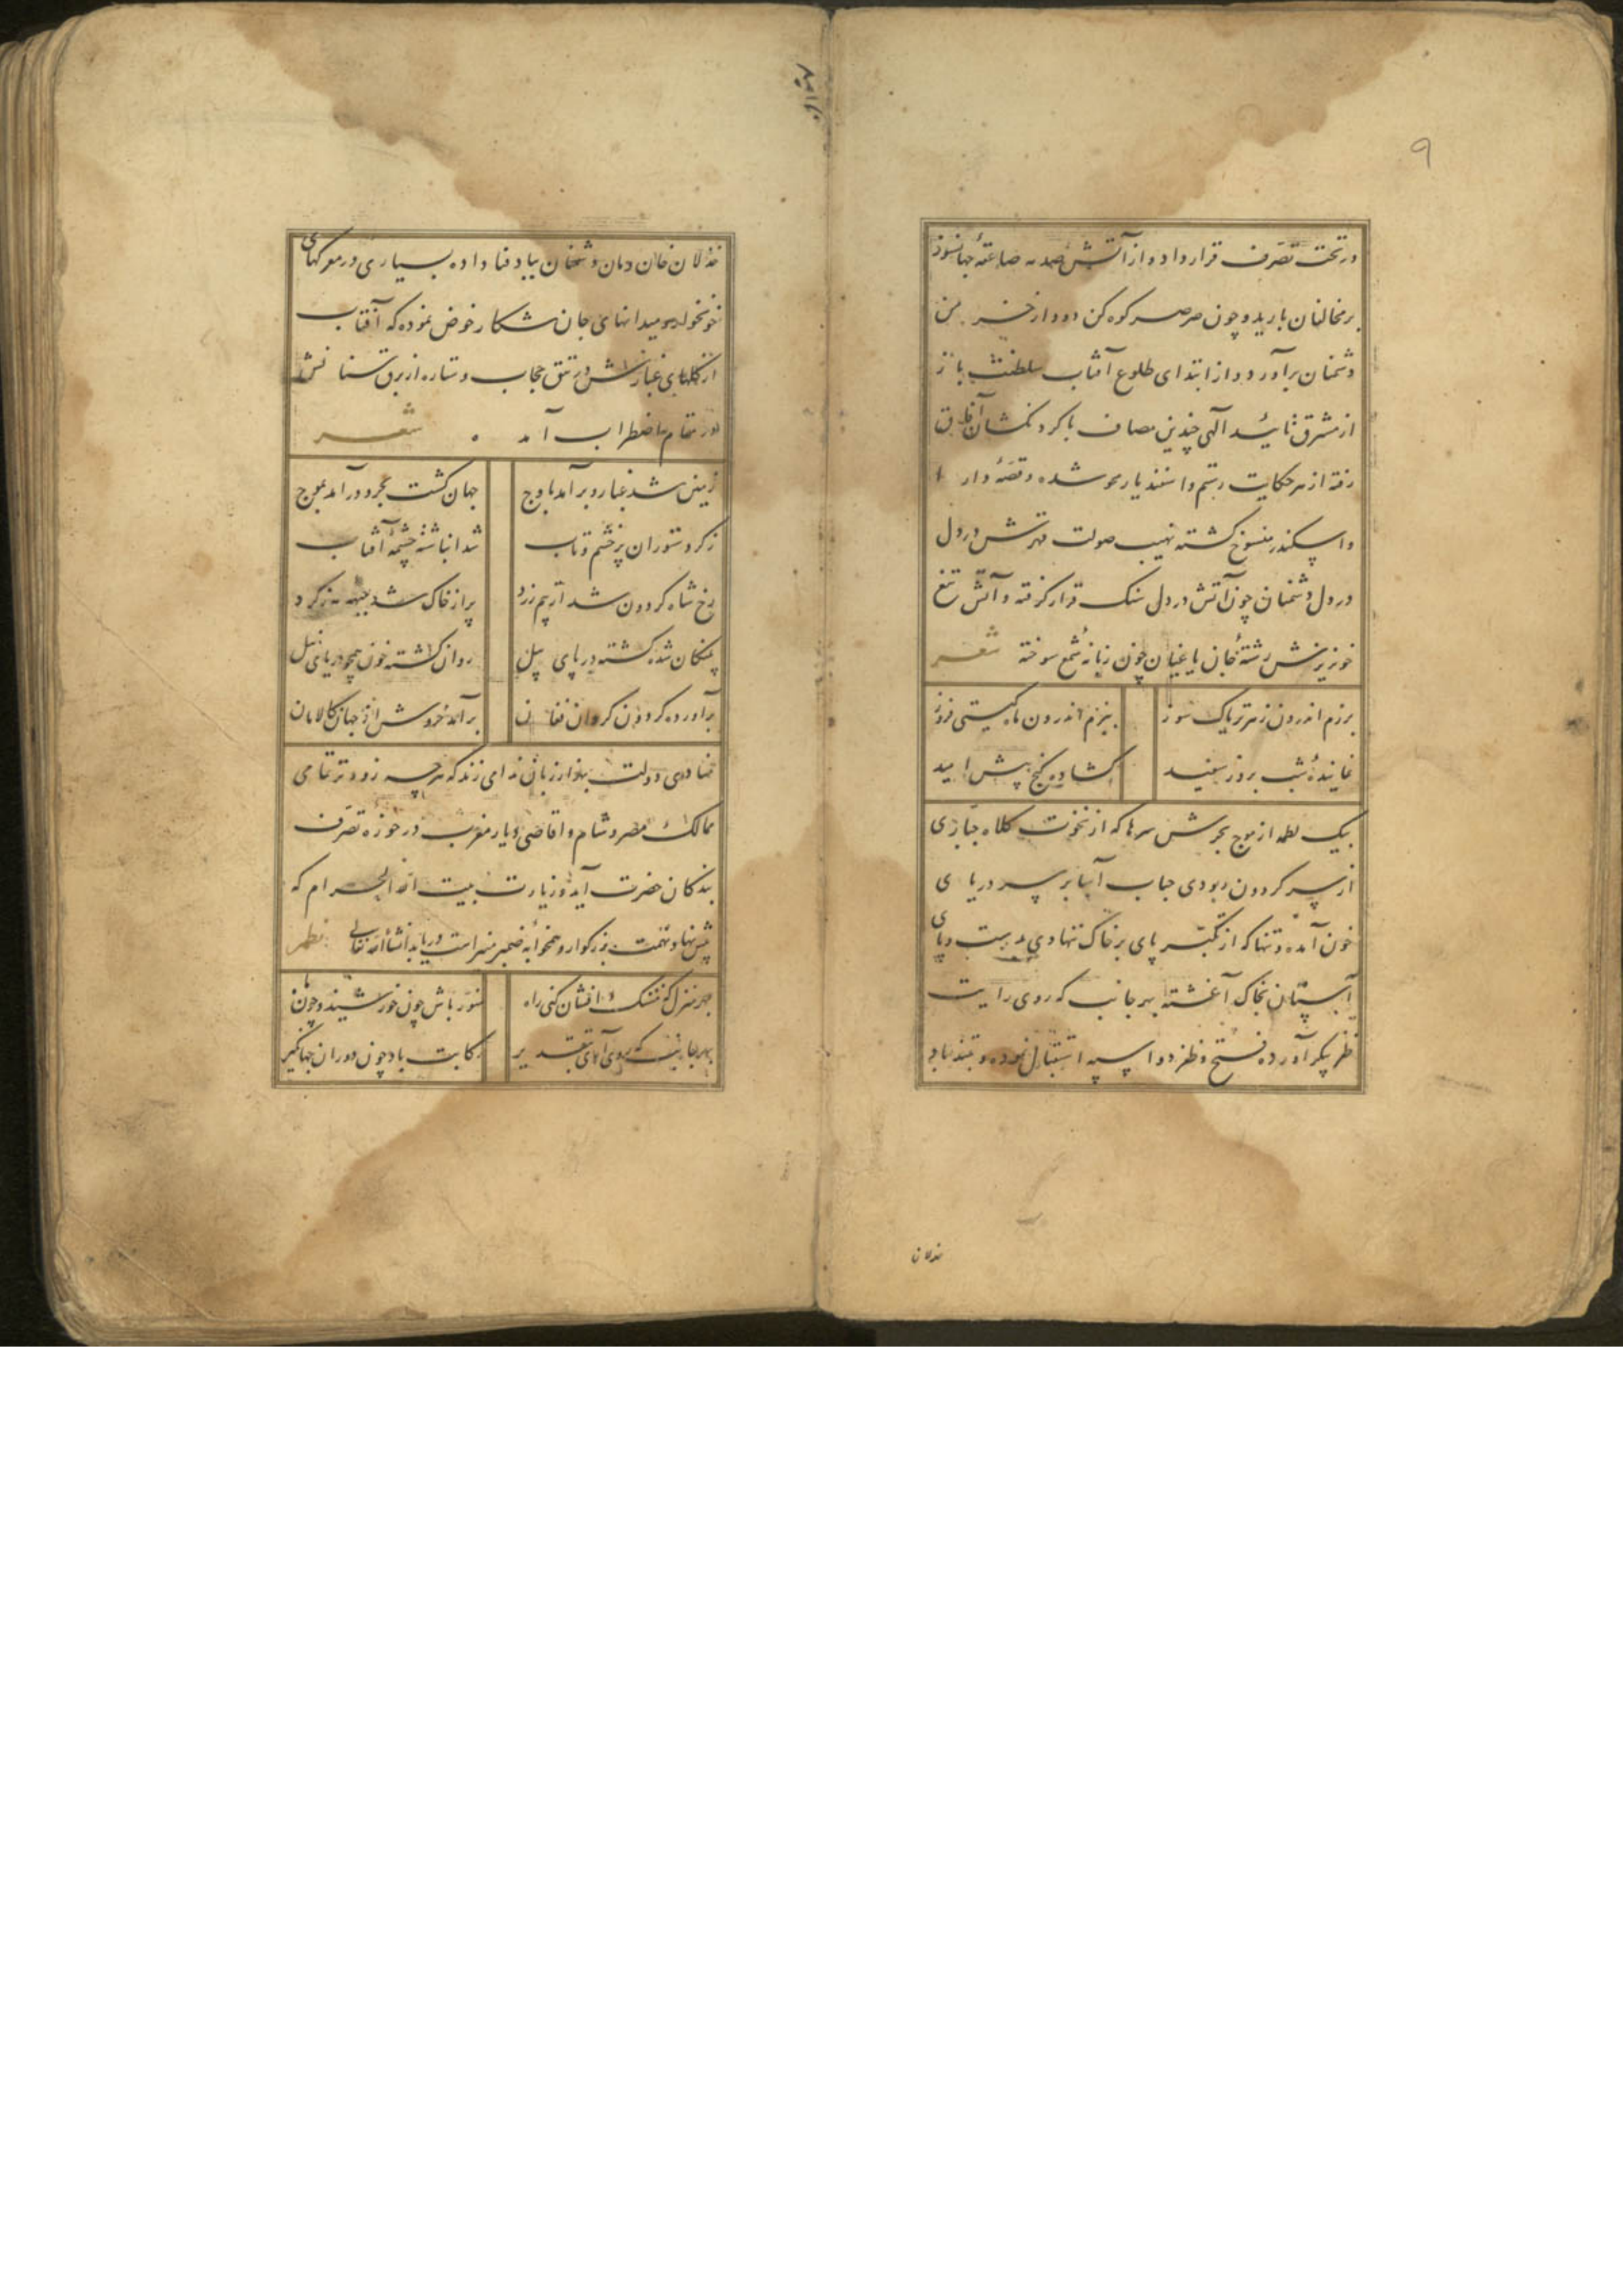 ۹
در تحت تصرف قرار داد و از آتش صدمه صاعقهٔ جهانسوز
بر مخالفان بارید و چون صرصر کوه کن دود از خرمن
دشمنان برآورد و از ابتدای طلوع آفتاب سلطنتش باز
از مشرق تائید آلهی چندین مصاف با کردنکشان آفاق
رفته از هر حکایت رستم و اسفندیار محو شده و قصهٔ دارا
و اسکندر منسوخ کشته نهیب صولت قهرش در دل
در دل دشمنان چون آتش در دل سنک قرار کرفته و آتش تیغ
خونریزش رشتهٔ جان یاغیان چون زبانهٔ شمع سوخته شعر
برزم اندرون زهر تریاک سوز ببزم اندرون ماه کیتی فروز
نمایندهٔ شب بروز سفید کشاده کنج پیش امید
بیک لطمه از موج بحرش سرها که از نخوت کلاه جباری
از سر کردون ربودی حباب آسا بر سر دریای
خون آمده و تنها که از تکبر پای بر خاک ننهادی دست و پای
بخاک آغشته بهر جانب که روی رایت
ظفر پیکر آورده فتح و ظفر دو اسپه استقبال نموده و تندباد
خذلان
خذلان خان و مان دشمنان بباد فنا داده بسیاری در معرکهای
خونخوار و میدانهای جان شکار خوض نموده که آفتاب
از غبارش در تتق حجاب و ستاره از برق سنانش
در مقام اضطراب آمد شعر
زمین شد غبار و برآمد باوج جهان کشت بحر و درآمد بموج
ز کرد ستوران پر خشم و تاب شد انباشته چشمهٔ آفتاب
رخ شاه کردون شد از بیم زرد پر از خاک شد ز کرد
پلنکان شده کشته در پای پیل روان کشته خون همچو دریای نیل
برآورده کردون کردان فغان برآمد خروش از جهان کالامان
منادی دولت بهزار زبان ندا می زند که هر چه زودتر تمامی
ممالک مصر و شام و اقاصی دیار مغرب در حوزه تصرف
بندکان حضرت آید و زیارت بیت الله الحرام که
پیش نهاد همت بزرکوار و همخوابه ضمیر منیر است دریابد انشاالله تعالی نظم
بهر منزل که مشک افشان کنی راه منور باش چون خورشید و چون ماه
بهر جانب که روی آری بتقدیر رکابت باد چون دوران جهانکیر